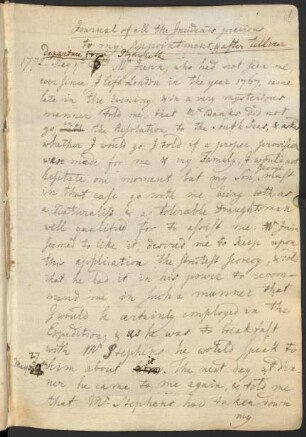 Journal of all the Incidents previous
to my appointment & after till our
Departure from
who had not seen me
ever since I left London in the year 1767, came
late in the Evening in a very mysterious
manner told me, that Mr. Banks did not
go with the Resolution to the South Seas, & asked
whether I would go; I told if a proper provision
were made for me & my Family, I would not
hesitate one moment, but my Son George must
in that case go with me being both as
a Naturalist & a tolerable Draughtsman
well qualified for to assist me. Mr
seemed to like it, desired me to keep upon
this application the strictest Secrecy, & said
that he had it in his power to recom-
mend me in such a manner that
I would be certainly employed in the
Expedition, & as he was to breakfast
with Mr Stephens he would speak to
him about it. The next day at din-
ner he came to me again, & told me
that Mr Stephens had taken down
my